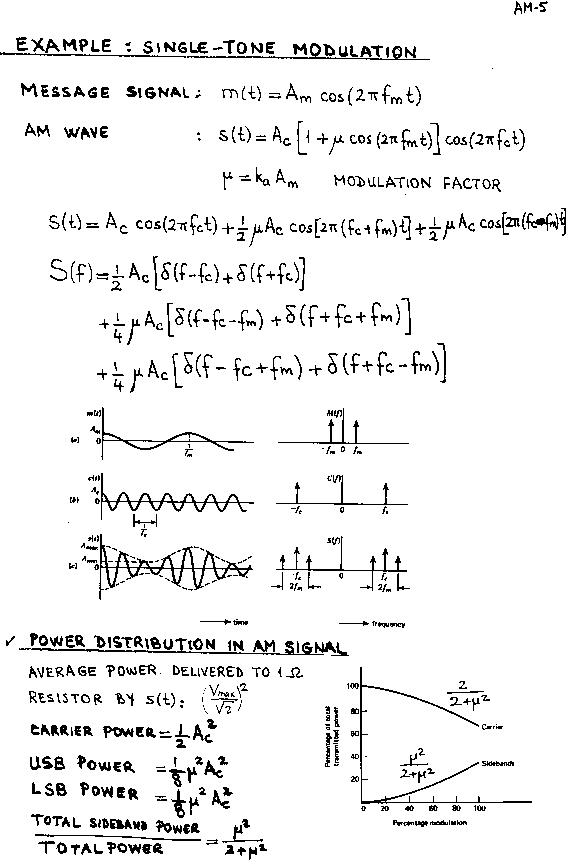 AM-5
EXAMPLE : SINGLE-TONE MODULATION
MESSAGE SIGNAL: m(t) = Am cos(2πfmt)
AM WAVE : s(t) = Ac[1 + μ cos(2πfmt)] cos(2πfct)
μ = ka Am MODULATION FACTOR
s(t) = Ac cos(2πfct) + 1/2 μAc cos[2π(fc+fm)t] + 1/2 μAc cos[2π(fc-fm)t]
S(f) = 1/2 Ac[δ(f-fc) + δ(f+fc)]
+ 1/4 μAc[δ(f-fc-fm) + δ(f+fc+fm)]
+ 1/4 μAc[δ(f-fc+fm) + δ(f+fc-fm)]
m(t) M(f)
Am
(a) 0 1/fm -fm 0 fm
c(t) C(f)
Ac
(b) 0 -fc 0 fc
1/fc
s(t) S(f)
Amax
Amin
(c) 0 -fc 0 fc
2fm 2fm
time frequency
✓ POWER DISTRIBUTION IN AM SIGNAL
AVERAGE POWER DELIVERED TO 1 Ω
RESISTOR BY s(t): (Vmax/√2)²
CARRIER POWER = 1/2 Ac²
USB POWER = 1/8 μ²Ac²
LSB POWER = 1/8 μ²Ac²
TOTAL SIDEBAND POWER / TOTAL POWER = μ²/(2+μ²)
Percentage of total
transmitted power
100
80
60
40
20
2/(2+μ²)
Carrier
μ²/(2+μ²)
Sidebands
0 20 40 60 80 100
Percentage modulation